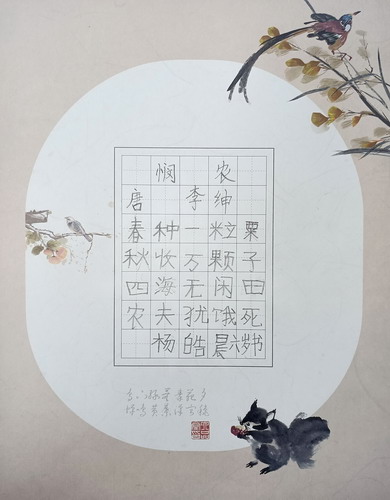 悯农
唐 李绅
春种一粒粟
秋收万颗子
四海无闲田
农夫犹饿死
杨皓晨六岁书